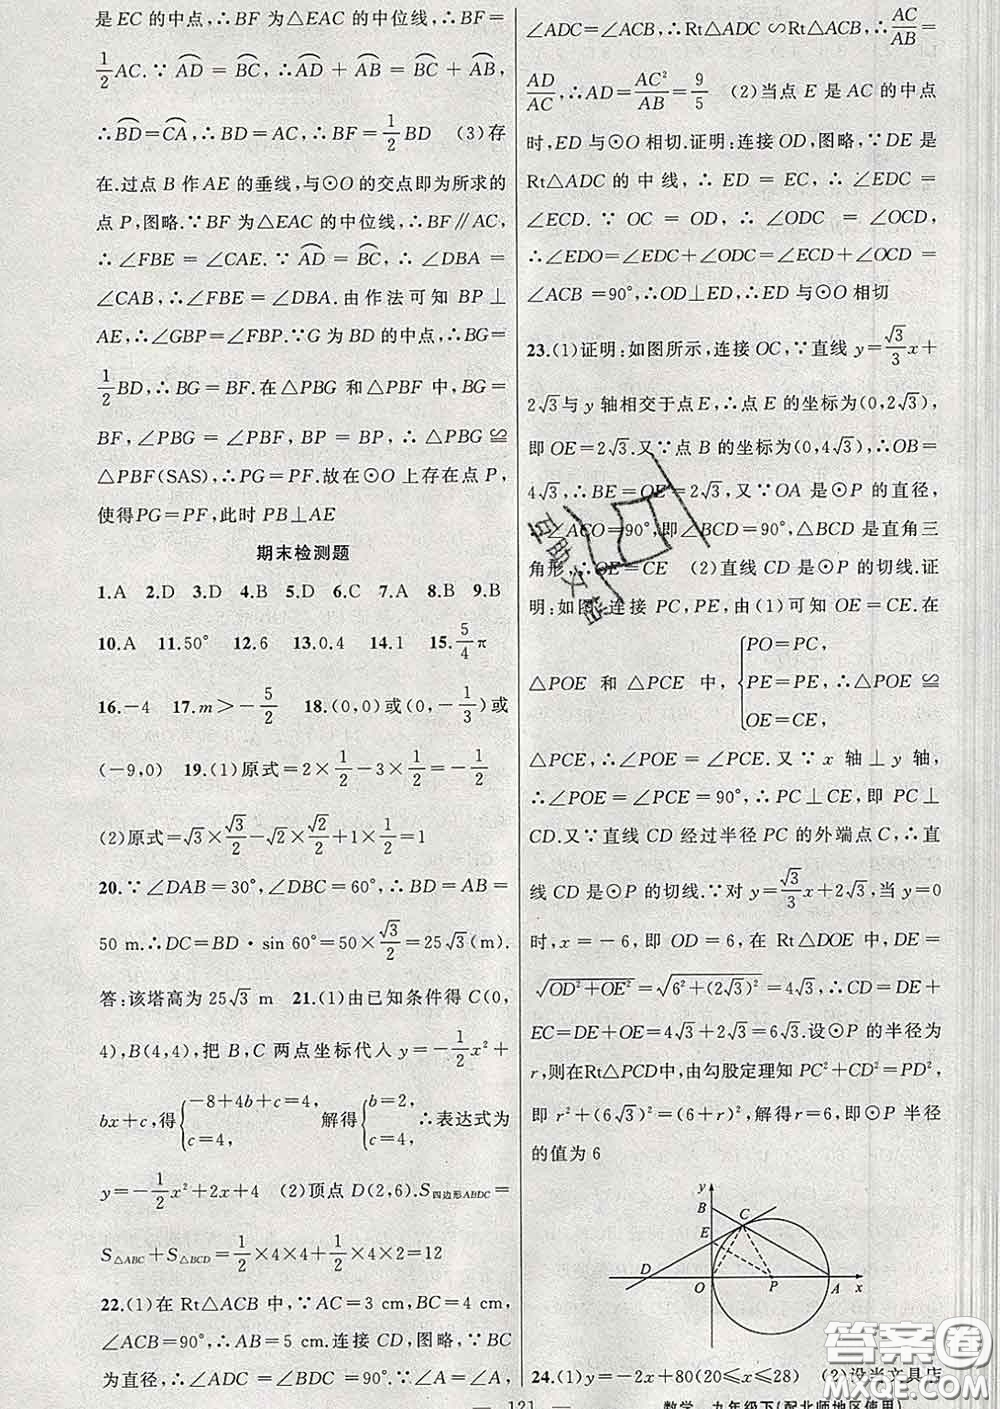 是EC的中点,∴BF为△EAC的中位线,∴BF=
1/2 AC.∵⌒AD=⌒BC,∴⌒AD+⌒AB=⌒BC+⌒AB,
∴⌒BD=⌒CA,∴BD=AC,∴BF=1/2 BD (3)存
在.过点B作AE的垂线,与⊙O的交点即为所求的
点P,图略.∵BF为△EAC的中位线,∴BF∥AC,
∴∠FBE=∠CAE.∵⌒AD=⌒BC,∴∠DBA=
∠CAB,∴∠FBE=∠DBA.由作法可知BP⊥
AE,∴∠GBP=∠FBP.∵G为BD的中点,∴BG=
1/2 BD,∴BG=BF.在△PBG和△PBF中,BG=
BF,∠PBG=∠PBF,BP=BP,∴△PBG≌
△PBF(SAS),∴PG=PF.故在⊙O上存在点P,
使得PG=PF,此时PB⊥AE
期末检测题
1.A 2.D 3.D 4.B 5.D 6.C 7.A 8.B 9.B
10.A 11.50° 12.6 13.0.4 14.1 15.5/4 π
16.-4 17.m>-5/2 18.(0,0)或(0,-1/3)或
(-9,0) 19.(1)原式=2×1/2-3×1/2=-1/2
(2)原式=√3×√3/2-√2×√2/2+1×1/2=1
20.∵∠DAB=30°,∠DBC=60°,∴BD=AB=
50 m.∴DC=BD·sin 60°=50×√3/2=25√3(m).
答:该塔高为25√3 m 21.(1)由已知条件得C(0,
4),B(4,4),把B,C两点坐标代入y=-1/2 x²+
bx+c,得{-8+4b+c=4, c=4, 解得{b=2, c=4, ∴表达式为
y=-1/2 x²+2x+4 (2)顶点D(2,6).S四边形ABDC=
S△ABC+S△BCD=1/2×4×4+1/2×4×2=12
22.(1)在Rt△ACB中,∵AC=3 cm,BC=4 cm,
∠ACB=90°,∴AB=5 cm.连接CD,图略,∵BC
为直径,∴∠ADC=∠BDC=90°.∵∠A=∠A,
∠ADC=∠ACB,∴Rt△ADC∽Rt△ACB,∴AC/AB=
AD/AC,∴AD=AC²/AB=9/5 (2)当点E是AC的中点
时,ED与⊙O相切.证明:连接OD,图略,∵DE是
Rt△ADC的中线,∴ED=EC,∴∠EDC=
∠ECD.∵OC=OD,∴∠ODC=∠OCD,
∴∠EDO=∠EDC+∠ODC=∠ECD+∠OCD
=∠ACB=90°,∴OD⊥ED,∴ED与⊙O相切
23.(1)证明:如图所示,连接OC,∵直线y=√3/3 x+
2√3与y轴相交于点E,∴点E的坐标为(0,2√3),
即OE=2√3.又∵点B的坐标为(0,4√3),∴OB=
4√3,∴BE=OE=2√3,又∵OA是⊙P的直径,
∴∠ACO=90°,即∠BCD=90°,△BCD是直角三
角形,∴OE=CE (2)直线CD是⊙P的切线.证
明:如图,连接PC,PE,由(1)可知OE=CE.在
△POE和△PCE中,{PO=PC, PE=PE, OE=CE, ∴△POE≌
△PCE,∴∠POE=∠PCE.又∵x轴⊥y轴,
∴∠POE=∠PCE=90°,∴PC⊥CE,即PC⊥
CD.又∵直线CD经过半径PC的外端点C,∴直
线CD是⊙P的切线.∵对y=√3/3 x+2√3,当y=0
时,x=-6,即OD=6,在Rt△DOE中,DE=
√(OD²+OE²)=√(6²+(2√3)²)=4√3,∴CD=DE+
EC=DE+OE=4√3+2√3=6√3.设⊙P的半径为
r,则在Rt△PCD中,由勾股定理知PC²+CD²=PD²,
即r²+(6√3)²=(6+r)²,解得r=6,即⊙P半径
的值为6
y
B
C
E
D
O
P
A
x
24.(1)y=-2x+80(20≤x≤28) (2)设当文具店
— 121 —
数学 九年级下(配北师地区使用)
互助文档
答案圈
MXQE.COM